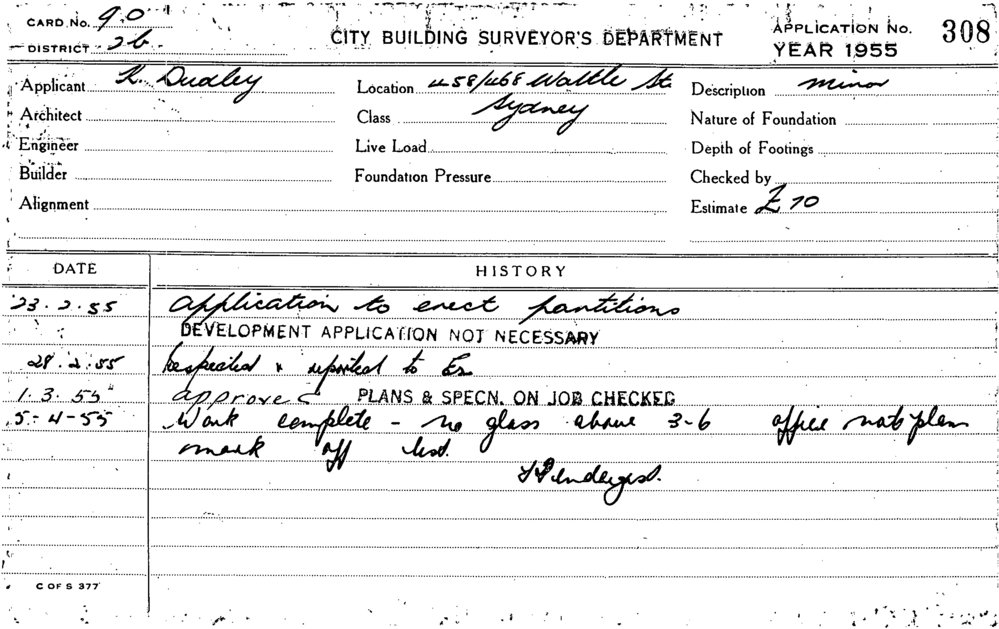 CARD No. 90
DISTRICT 2b
CITY BUILDING SURVEYOR'S DEPARTMENT
APPLICATION No. 308
YEAR 1955
Applicant K. Dudley
Location 458/468 Wattle St.
Sydney
Description minor
Architect
Class
Nature of Foundation
Engineer
Live Load
Depth of Footings
Builder
Foundation Pressure
Checked by
Alignment
Estimate £70
DATE HISTORY
23.2.55 Application to erect partitions
DEVELOPMENT APPLICATION NOT NECESSARY
28.2.55 Inspected & reported to
1.3.55 approved PLANS & SPECN. ON JOB CHECKED
5-4-55 Work complete - no glass above 3-6 office not plan
mark off list.
C OF S 377